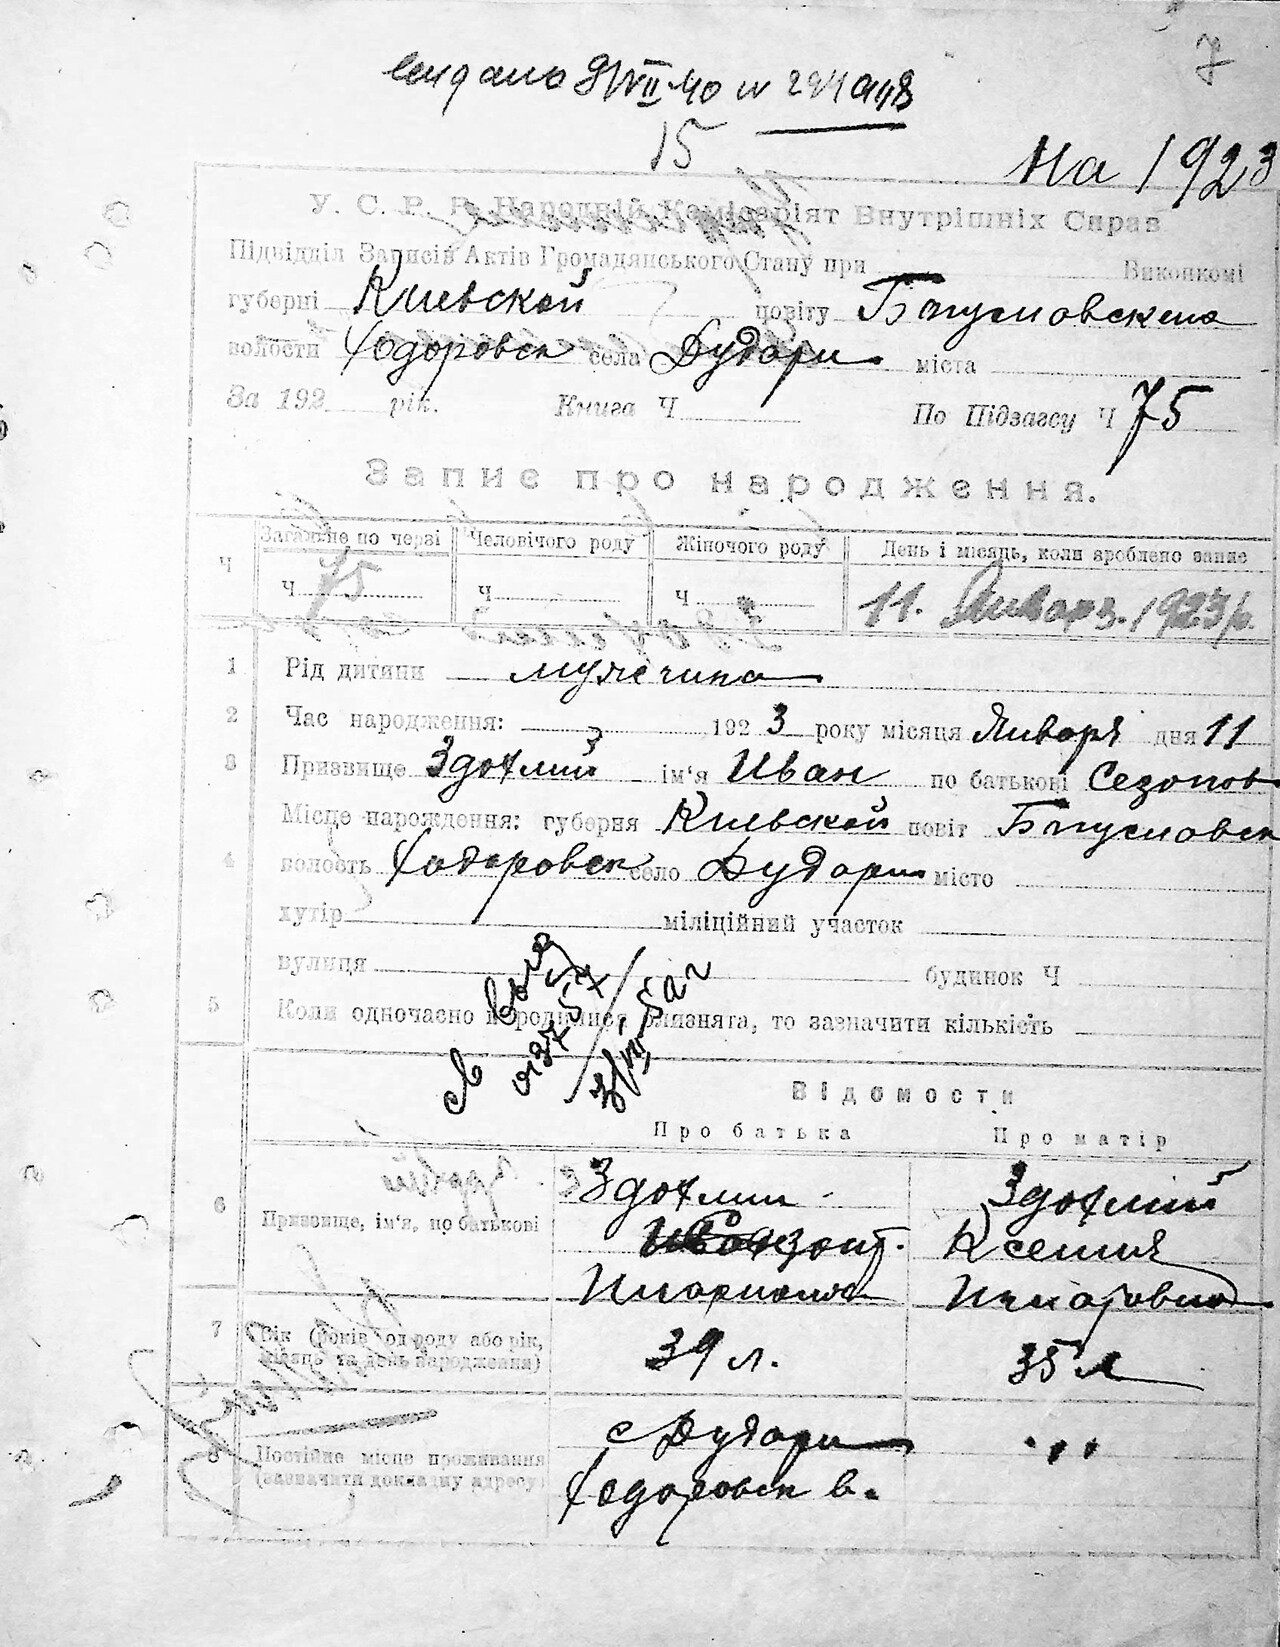 7
видано 9/VII 40
15
На 1923
У. С. Р. Р. Народній Комісаріят Внутрішніх Справ
Підвідділ Записів Актів Громадянського Стану при Виконкомі
губерні Киевской повіту Богуславскаго
волости Ходоровск села Дудари міста
За 192 рік. Книга Ч По Підзагсу Ч 75
Запис про народження.
Ч Загальне по черзі Человічого роду Жіночого роду День і місяць, коли зроблено запис
Ч 75 Ч Ч 11. Января 1923 р.
1 Рід дитини мужчина
2 Час народження: 1923 року місяця Января дня 11
3 Призвище Здотлий ім'я Иван по батькові Сезонов
Місце народження: губерня Киевской повіт Богуславск
4 волость Ходоровск село Дудари місто
хутір міліційний участок
вулиця будинок Ч
5 Коли одночасно народилися близнята, то зазначити кількість
Відомости
Про батька Про матір
6 Призвище, ім'я, по батькові
Здотлий Здотлий
Ксения
7 Вік (років од роду або рік, місяць та день народження) 39 л. 35 л
8 Постійне місце проживання (зазначити докладну адресу)
с Дудари
Ходоровск в.